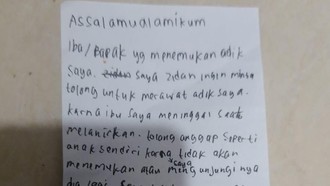 ASSalamualamikum
Iba/Bapak yg menemukan adik
saya. saya zidan ingin minta
tolong untuk merawat adik saya.
karna ibu saya meninggal saat
melahirkan. tolong anggap seperti
anak sendiri karna tidak akan
saya
menemukan atau mengunjungi nya